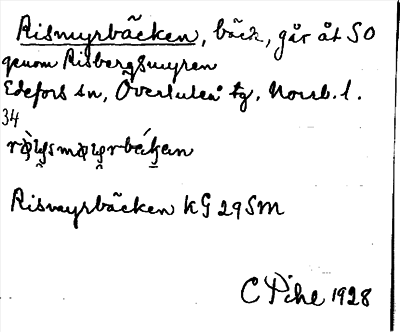 Rismyrbäcken, bäck, går åt SO
genom Risbergsmyren
Edefors sn, Överluleå tg, Norrb. l.
34
Rismyrbäcken KG 29SM
C Pihl 1928